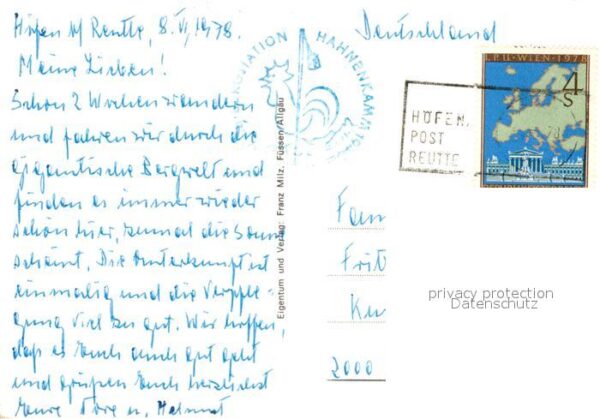 Höfen b/ Reutte, 8. VI, 1978.
Meine Lieben!
Schon 2 Wochen wandern
und fahren wir durch die
gigantische Bergwelt und
finden es immer wieder
schön hier, zumal die Sonne
scheint. Die Unterkunft ist
einmalig und die Verpfle-
gung viel zu gut. Wir hoffen,
daß es Euch auch gut geht
und grüßen Euch herzlichst
Eure Dore u. Helmut
STATION HAHNENKAMM
Eigentum und Verlag: Franz Milz, Füssen/Allgäu
Deutschland
I.P.U. WIEN 1978
4
S
HÖFEN
POST
REUTTE
Fam
Frit
Ku
2000
privacy protection
Datenschutz